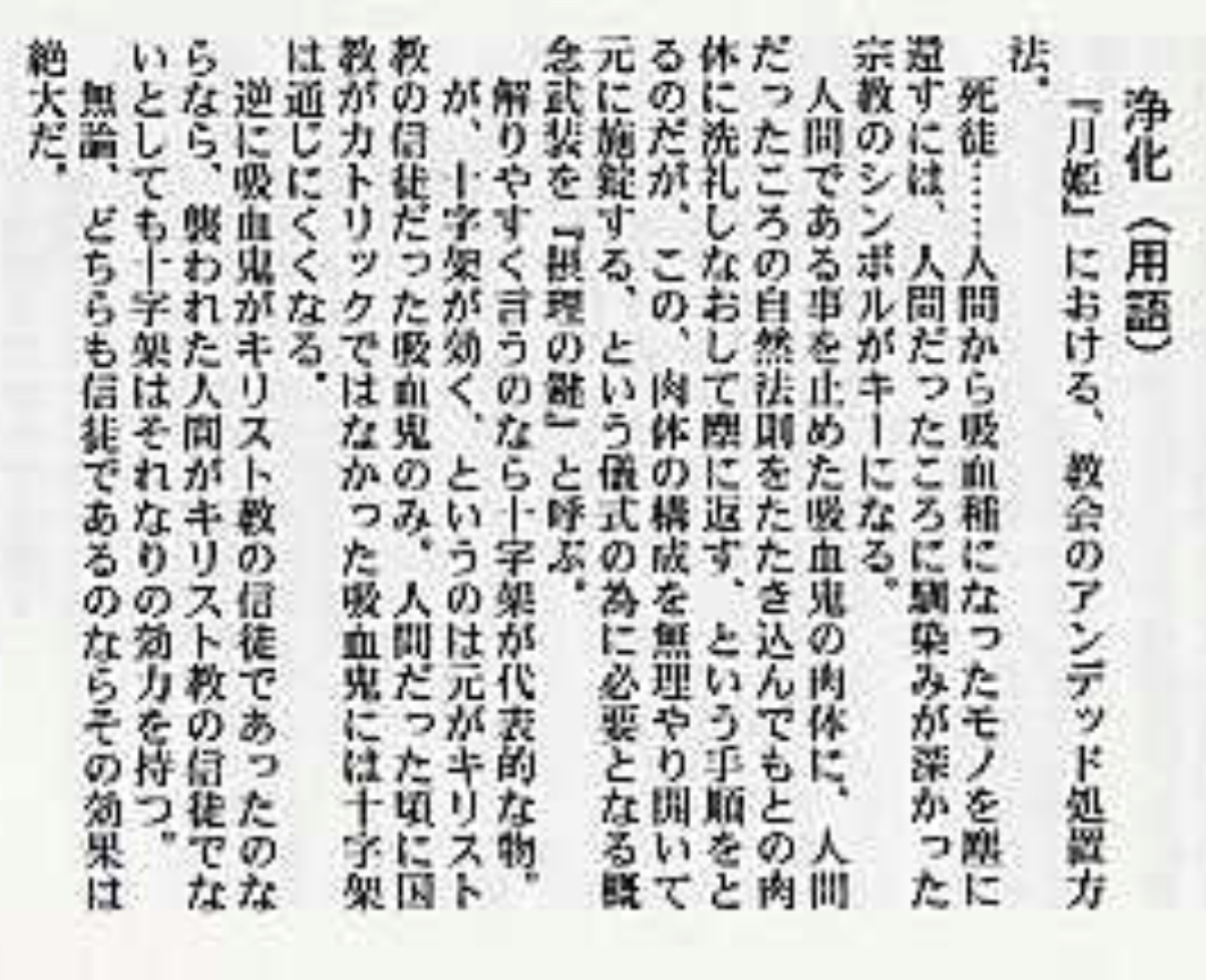 浄化（用語）
『月姫』における、教会のアンデッド処置方
法。
死徒……人間から吸血種になったモノを塵に
還すには、人間だったころに馴染みが深かった
宗教のシンボルがキーになる。
人間である事を止めた吸血鬼の肉体に、人間
だったころの自然法則をたたき込んでもとの肉
体に洗礼しなおして塵に返す、という手順をと
るのだが、この、肉体の構成を無理やり開いて
元に施錠する、という儀式の為に必要となる概
念武装を『摂理の鍵』と呼ぶ。
解りやすく言うのなら十字架が代表的な物。
が、十字架が効く、というのは元がキリスト
教の信徒だった吸血鬼のみ。人間だった頃に国
教がカトリックではなかった吸血鬼には十字架
は通じにくくなる。
逆に吸血鬼がキリスト教の信徒であったのな
らなら、襲われた人間がキリスト教の信徒でな
いとしても十字架はそれなりの効力を持つ。
無論、どちらも信徒であるのならその効果は
絶大だ。